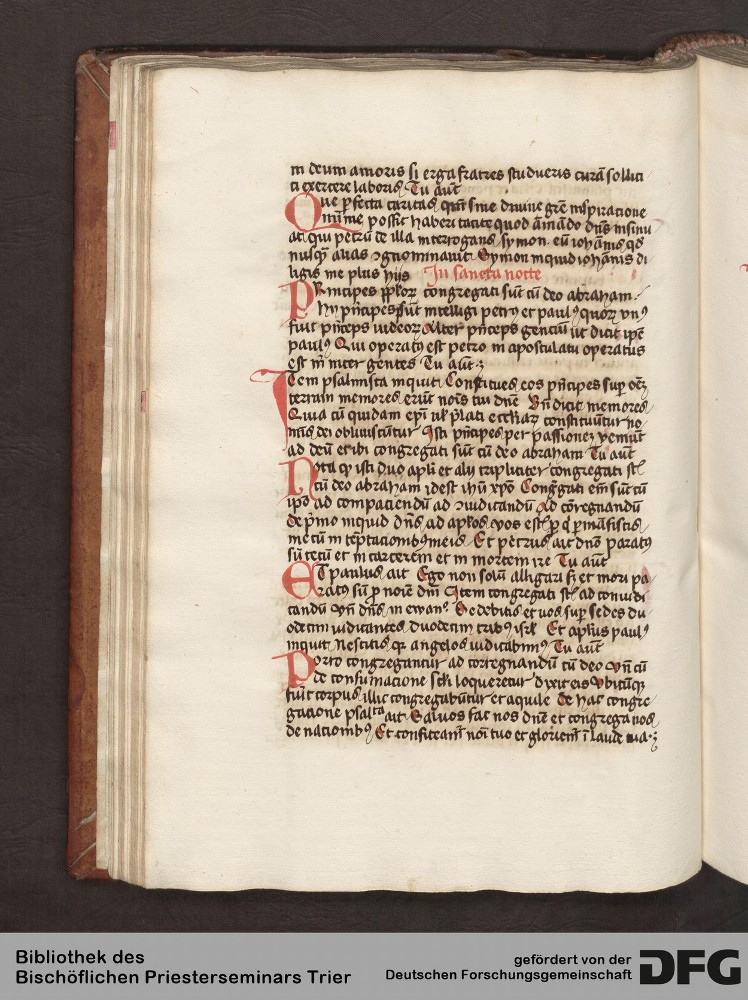 in deum amoris si erga fratres studueris curā sollici
ti exercere laboris Tu aūt
Que pfecta caritas qm̄ sine diuine grē inspiracione
minime posset haberi tacite quod amādo dn̄s insinu
at qui petrū de illa interrogans symon eū iohānis
nusqᷓ alias ꝯgnominauit Symon inquid iohānis di
ligis me plus hijs In sancta nocte
Principes pplorꝝ congregati sūt cū deo abraham
Hij pn̄cipes sūt intelligi petrꝰ et paulꝰ quorꝝ vnꝰ
fuit pn̄ceps iudeorꝝ Alter pn̄ceps genciū ut dicit ipē
paulꝰ Qui operatꝰ est petro in apostulatu operatus
est m̄ inter gentes Tu aūt
Item psalmista inquit Constitues eos pn̄cipes sup oēꝫ
terram memores erūt nois tui dn̄e Vn̄ dicit memores
Quia cū quidam epī ul plati constituūtur no
mīs dei obliuiscūtur Isti pn̄cipes per passioneꝫ venīut
ad deū et ibi congregati sūt cū deo abraham Tu aūt
Nota qꝫ isti duo apli et alij tripliciter congregati st
cū deo abraham idest ihū xpō Congregati em̄ sūt cū
ipō ad compaciendū ad ꝯiudicandū Ad cōregnandū
de pmo inquid dn̄s ad aplos vos estis qui pmāsistis
mecū in teptacionibꝰ meis Et petrus ait dn̄o paratꝰ
sū tecū et in carcerem et in mortem ire Tu aūt
Et paulus ait Ego non solū alligari sꝫ et mori pa
ratꝰ sū p noīe dn̄i Item congregati st ad coniudi
candū vn̄ dn̄s in ewanᵒ Sedebitis et uos sup sedes du
odecim iudicantes duodecim tribꝰ isrl Et aplus paulꝰ
inquit Nescitis qꝫ angelos iudicabimꝰ Tu aūt
Porro congregantur ad corregnandū cū deo Vn̄ cū
de consūmacione scli loqueretur dixit eis Vbicūqꝫ
fuit corpus illic congregabūtur et aquile De hac congre
gacione psalᵗᵃ ait Saluos fac nos dn̄e et congrega nos
de nacionibꝰ Et confiteamᷓ noī tuo et gloriemᷓ ī laude tua
Bibliothek des
Bischöflichen Priesterseminars Trier
gefördert von der
Deutschen Forschungsgemeinschaft DFG